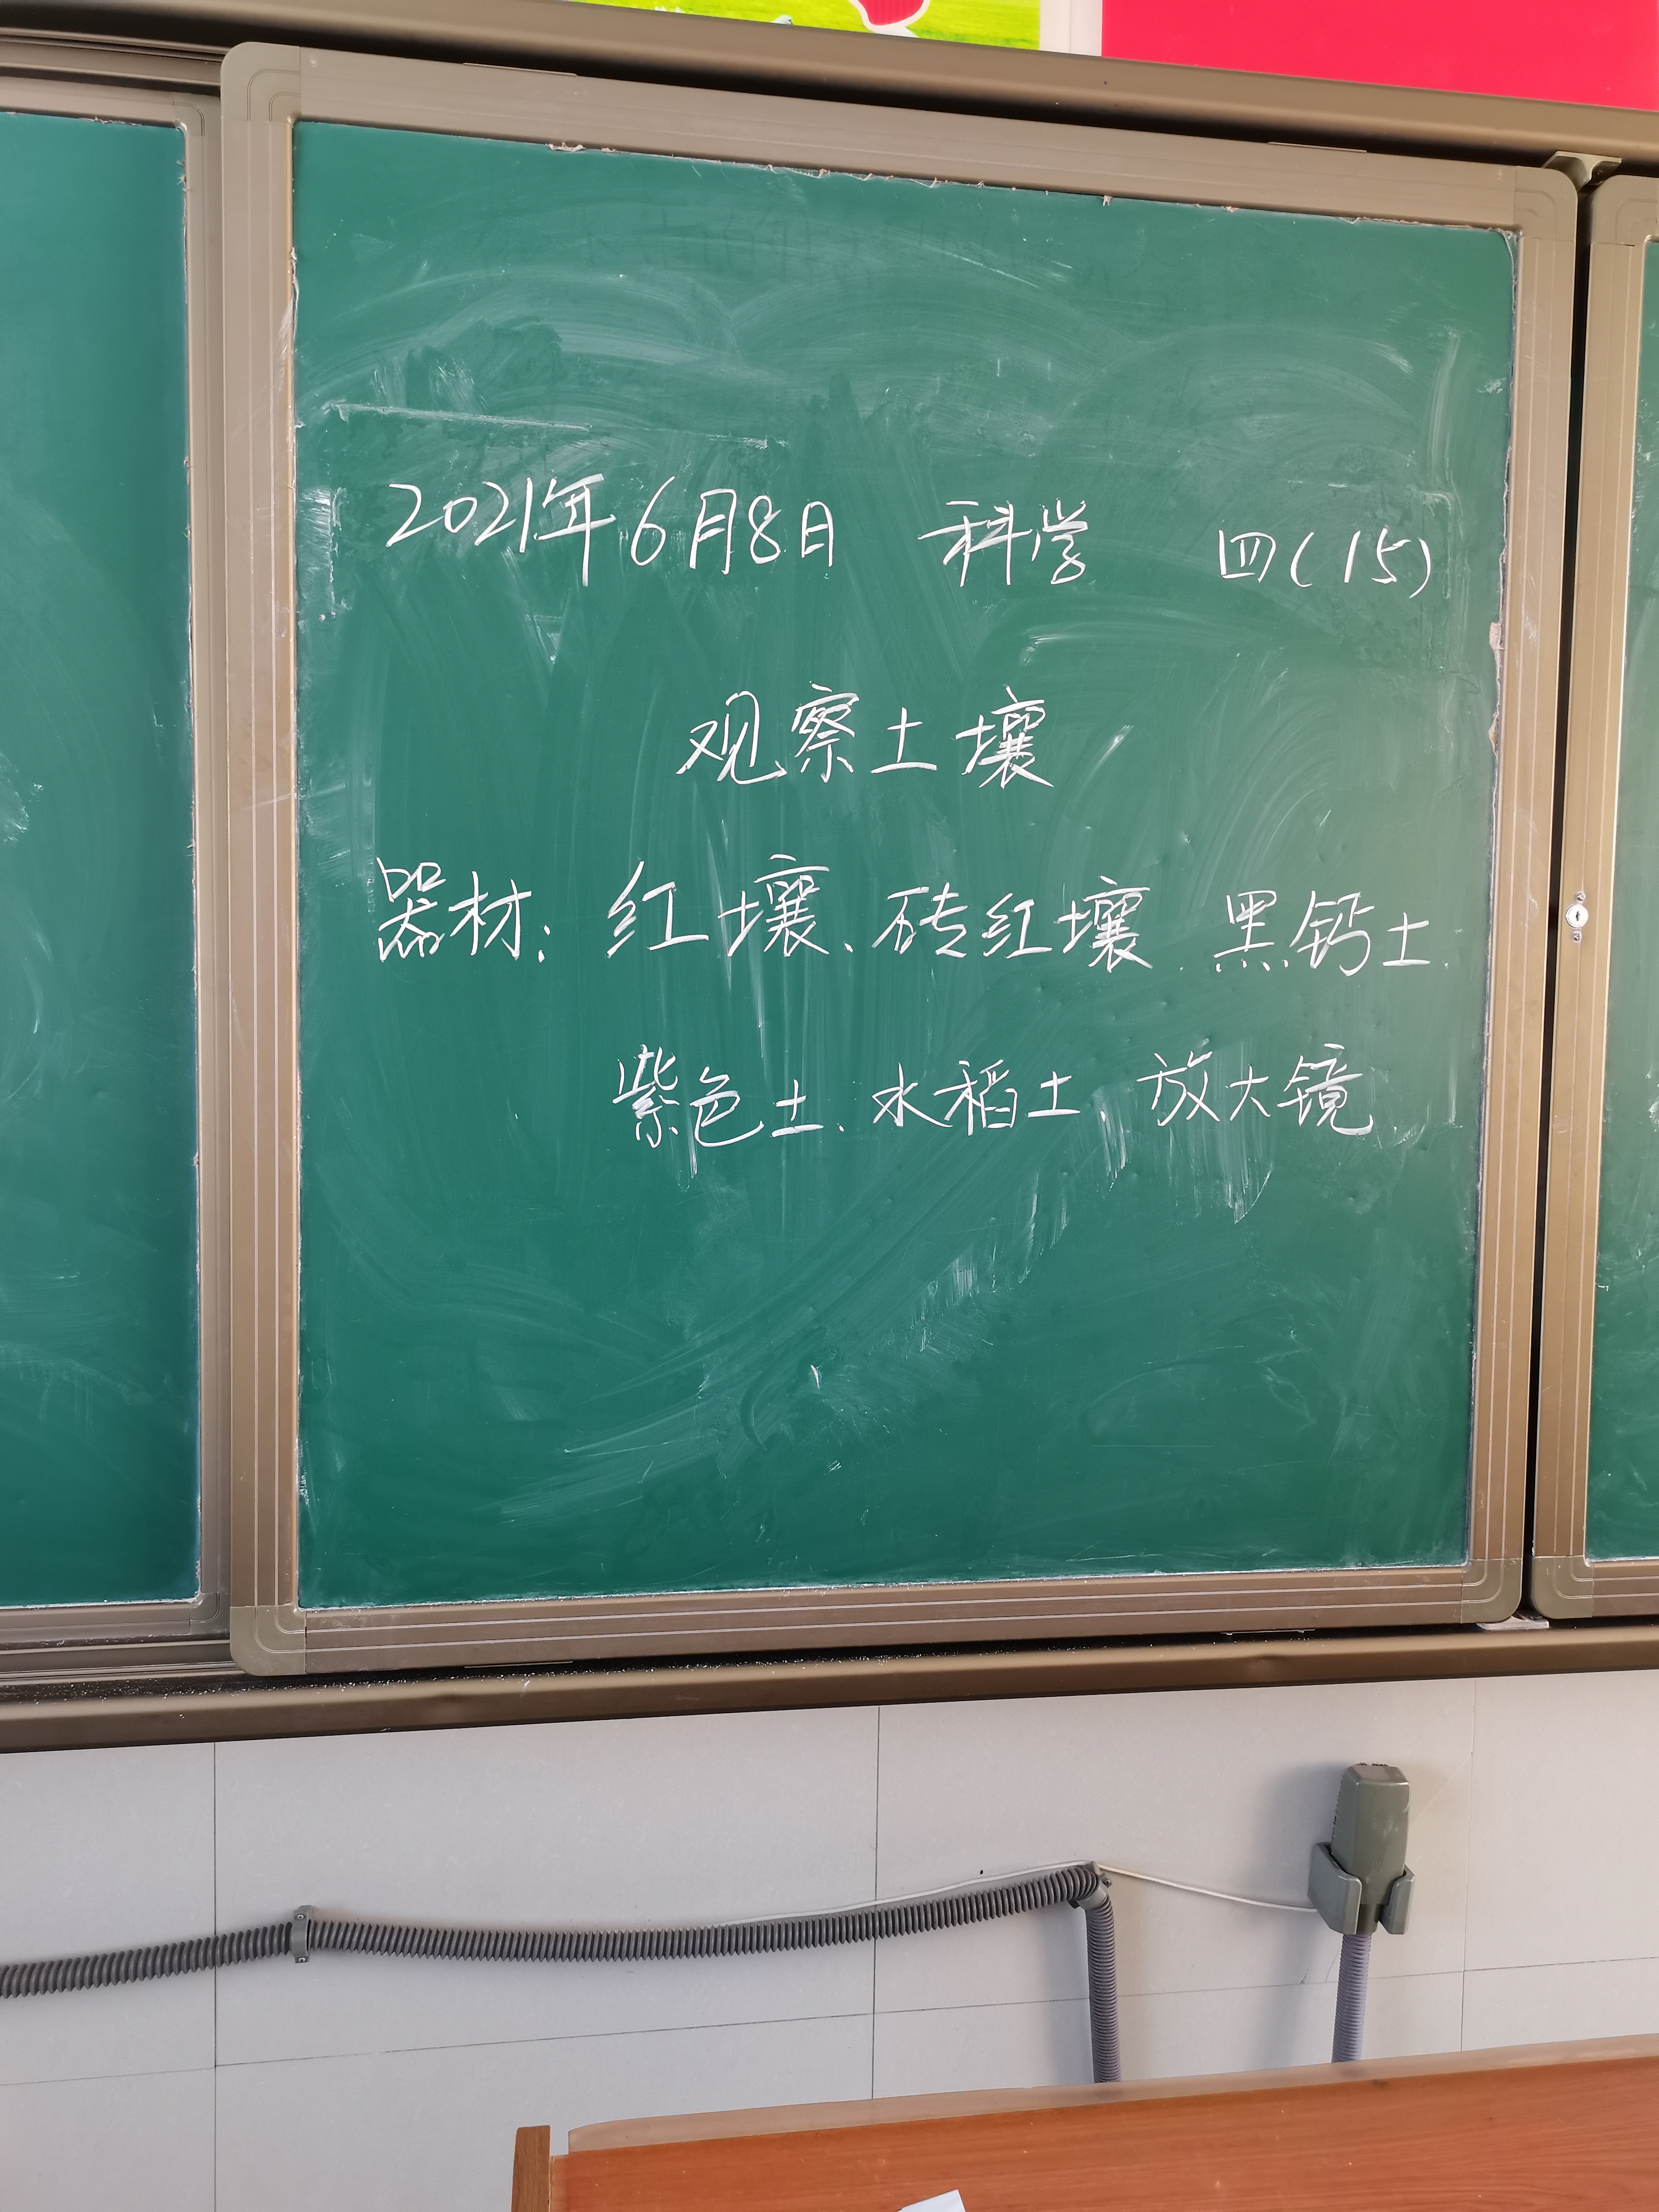 2021年6月8日 科学 四(15)
观察土壤
器材: 红壤、砖红壤、黑钙土、
紫色土、水稻土 放大镜